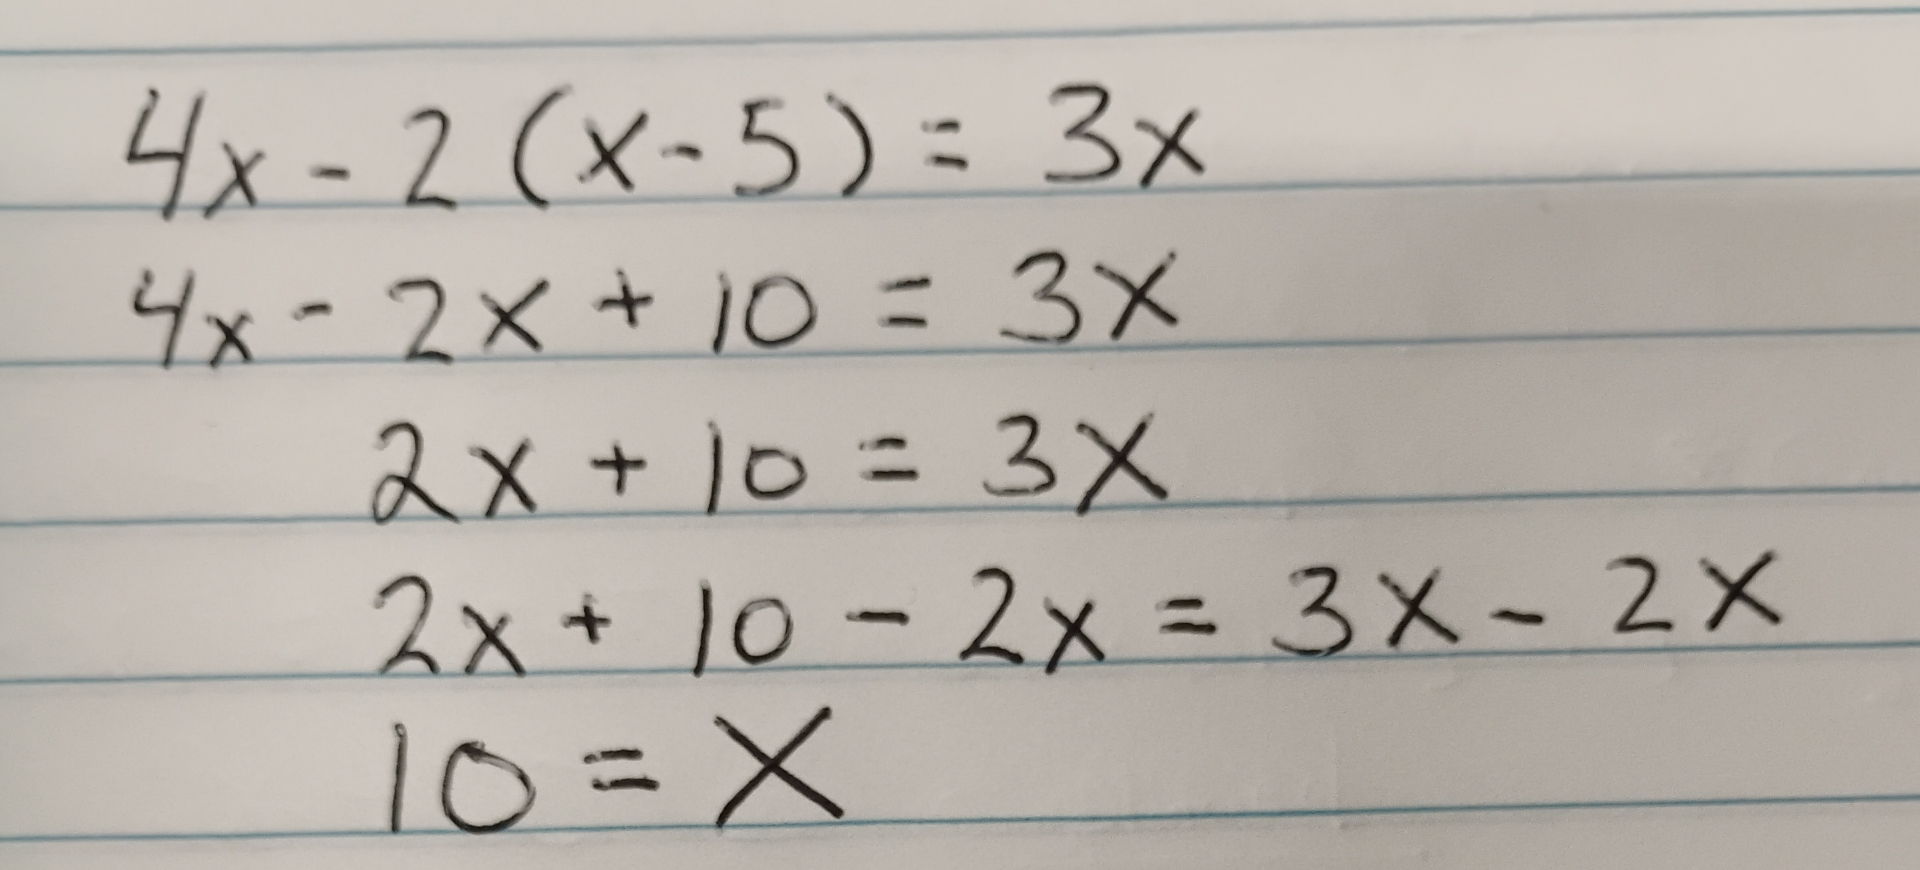 4x - 2(x-5) = 3x
4x - 2x + 10 = 3x
2x + 10 = 3x
2x + 10 - 2x = 3x - 2x
10 = x